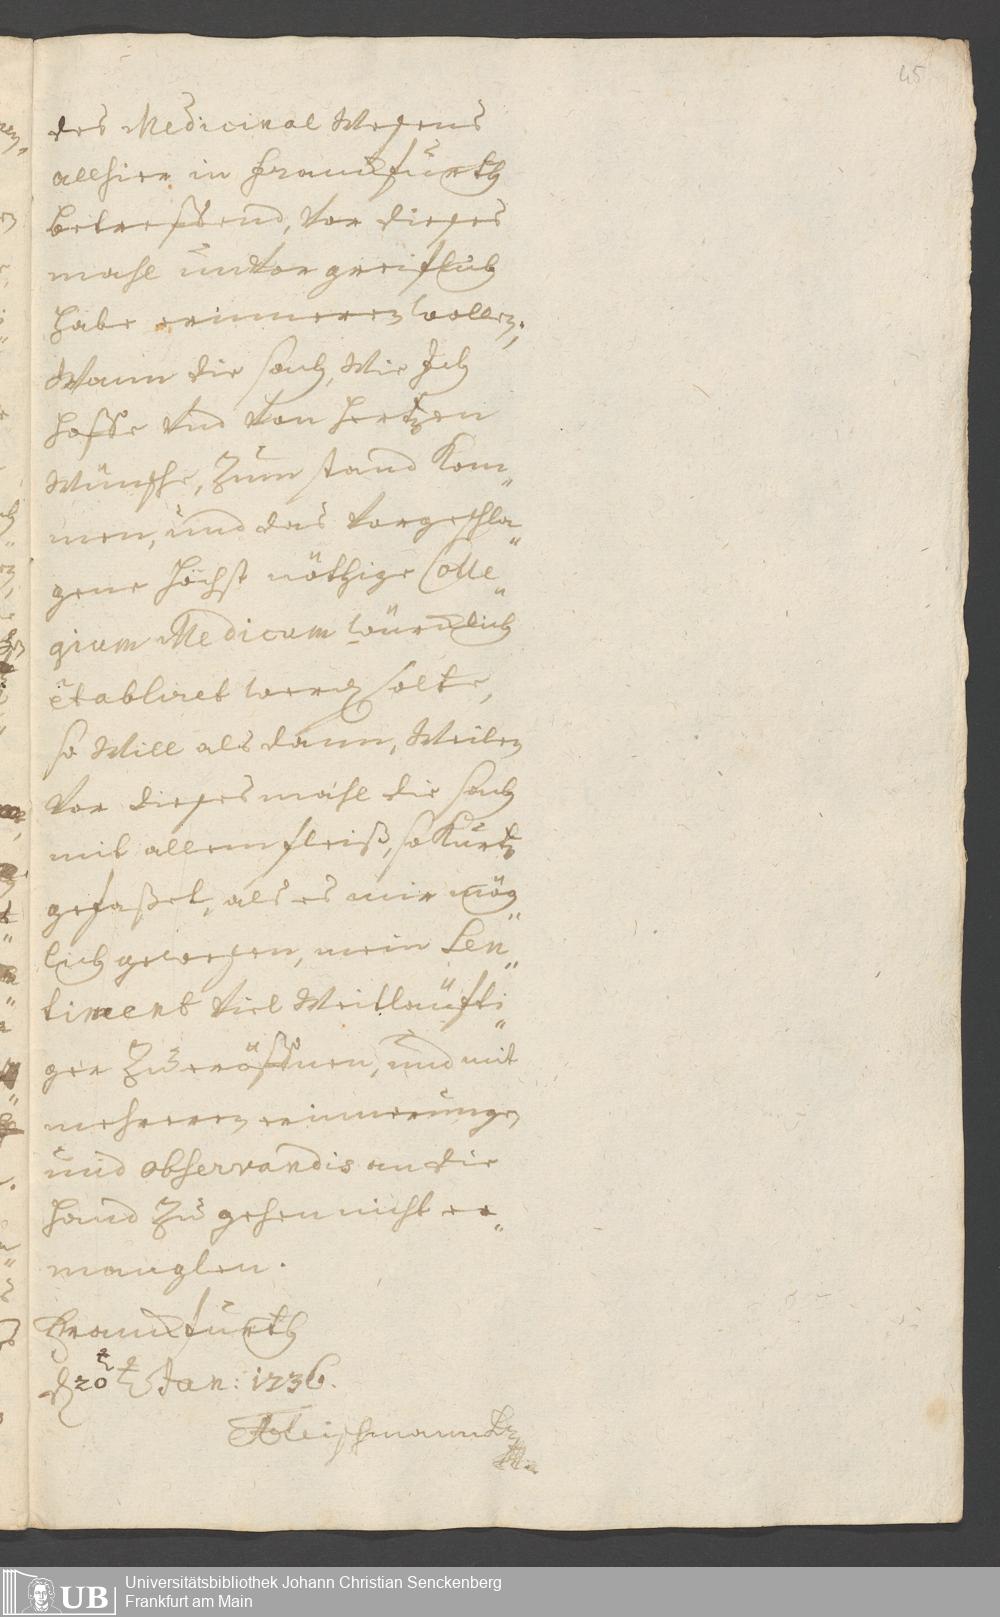 45
des Medicinal Wesens
allhier in Franckfurth
betreffend, vor dieses
mahl unvorgreifflich
habe erinneren wollen;
Wann die sach, wie Ich
hoffe und von hertzen
wünsche, zum stand kom„
men, und das vorgeschla„
gene höchst nöthige Colle„
gium Medicum würcklich
etabliret werden solte,
so will als dann, weilen
vor dieses mahl die sach
mit allem fleiß, so kurtz
gefaßet, als es mir mög„
lich gewesen, mein Sen„
timent viel weitläuffti„
ger zu eröffnen, und mit
mehreren erinnerungen
und observandis an die
hand zu gehen nicht er„
manglen.
Franckfurth
d 20t Jan: 1736.
Fleischmann
UB
Universitätsbibliothek Johann Christian Senckenberg
Frankfurt am Main